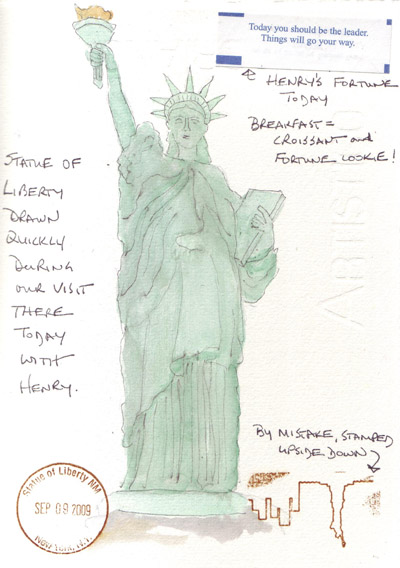 Today you should be the leader.
Things will go your way.
HENRY'S FORTUNE
TODAY
BREAKFAST =
CROISSANT and
FORTUNE COOKIE!
STATUE OF
LIBERTY
DRAWN
QUICKLY
DURING
OUR VISIT
THERE
TODAY
WITH
HENRY.
BY MISTAKE, STAMPED
UPSIDE DOWN
Statue of Liberty NM
SEP 09 2009
New York, N.Y.